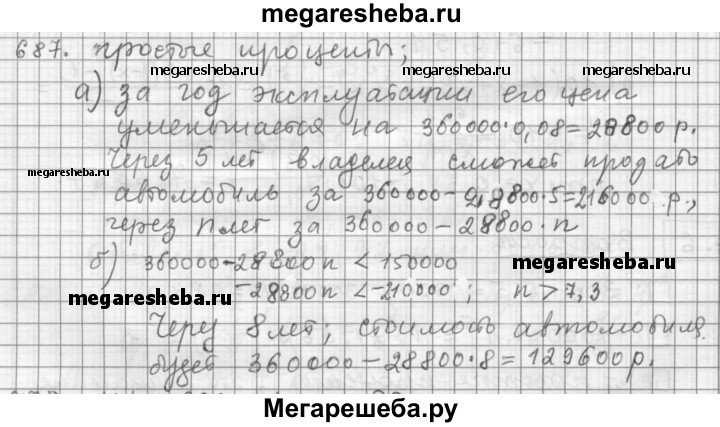 megaresheba.ru
687. простые проценты;
megaresheba.ru megaresheba.ru
а) за год эксплуатации его цена
уменьшается на 360000·0,08=28800 р.
Через 5 лет владелец сможет продать
megaresheba.ru
автомобиль за 360000-28800·5=216000 р.,
через n лет за 360000-28800·n
б) 360000-28800n < 150000
megaresheba.ru
-28800n < -210000; n > 7,3
megaresheba.ru
Через 8 лет; стоимость автомобиля
будет 360000-28800·8=129600 р.
megaresheba.ru megaresheba.ru
Мегарешеба.ру